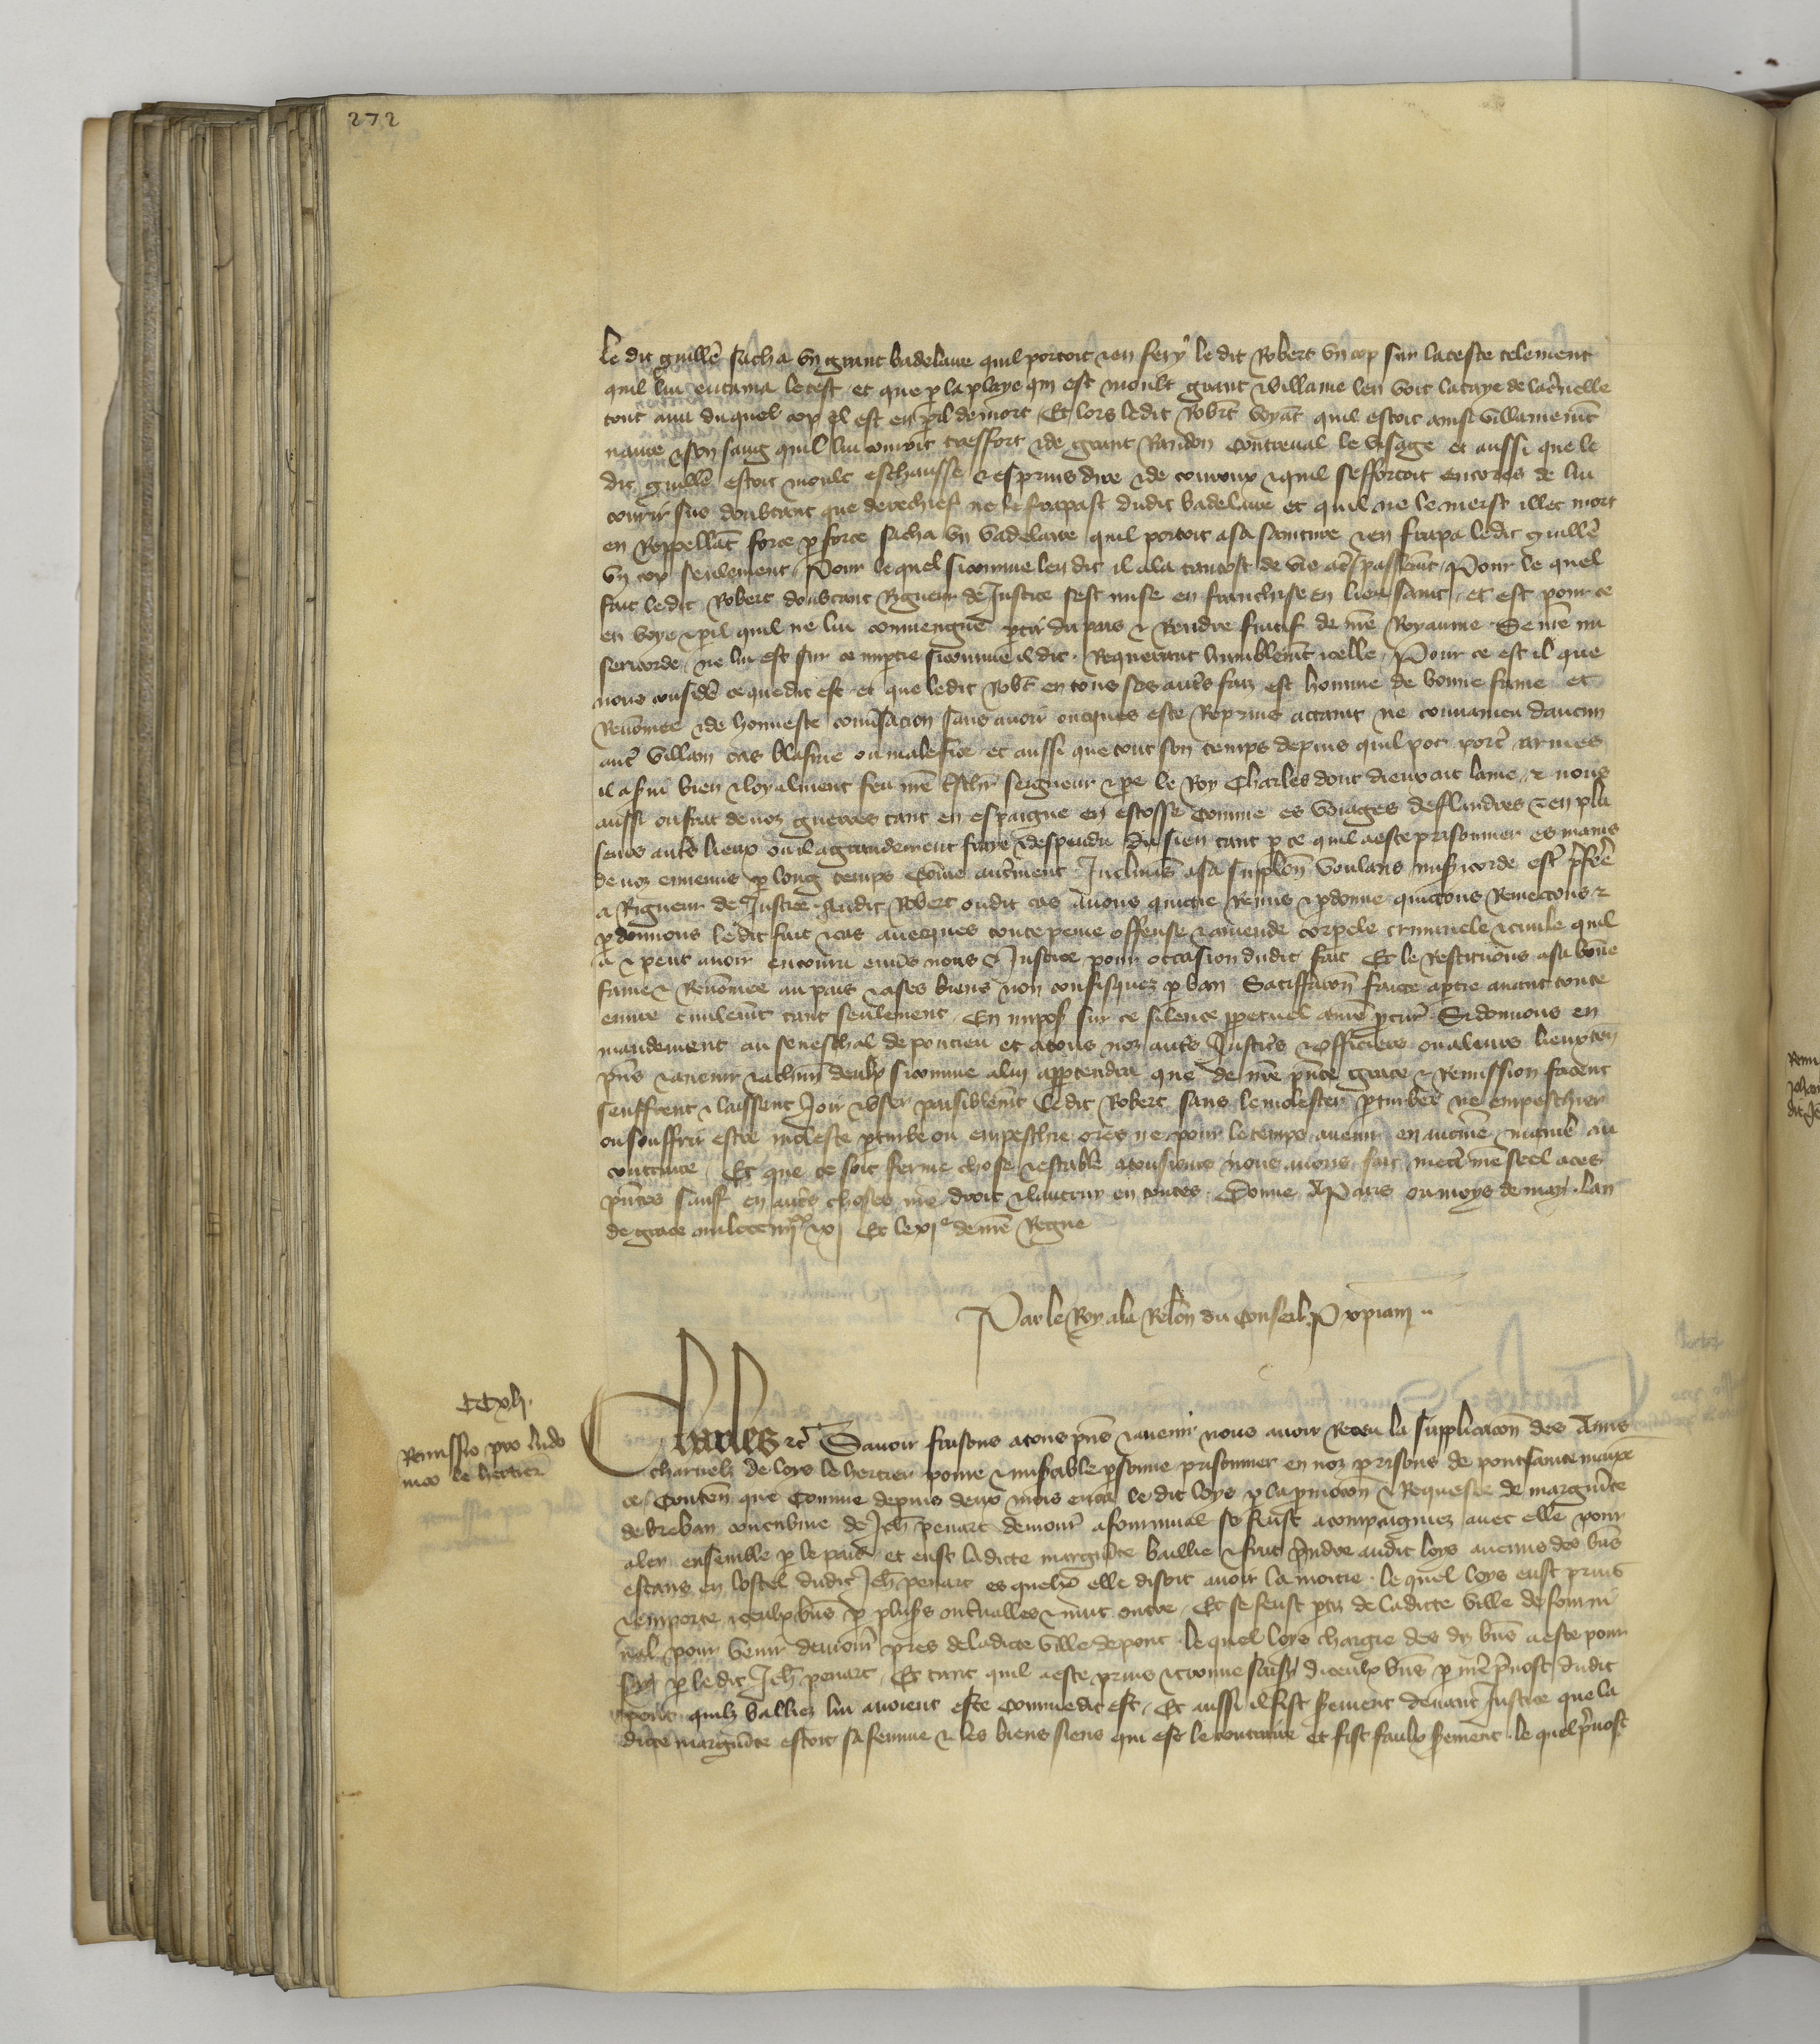 272
le dit guille sacha un grant badelaire quil portoit et en fery le dit Robert un cop sur la teste telement
quil lui entama le test et que p la playe qui est moult grant et villaine len voit la taye de la cervelle
tout aval duquel cop il est en peril de mort Et lors ledit Robt voyat quil estoit ainsi villainemt
navre et son sang quil lui couroit tresfort et de grant Randon contreval le visage et aussi que le
dit guille estoit moult eschauffe et esprins dire et de couroux et quil sefforcoit encores de lui
courir sus doubtant que derechief ne le frapast dudit badelaire et quil ne le meist illec mort
en Reppellat force p force sacha un badelaire quil portoit a sa sainture et en frapa ledit guille
un cop seulement Pour lequel sicomme len dit il ala tantost de vie a trespassemt Pour le quel
fait ledit Robert doubtant Rigueur de Justice sest mise en franchise en lieu saint et est pour ce
en voye et peril quil ne lui conviengne ptir du pais et Rendre fuitif de nre Royaume Se nre mi
sericorde ne lui est sur ce imptie sicomme il dit Requerant humblemt icelle Pour ce est il que
nous considere ce que dit est et que ledit Robt en tous ses autres faiz est homme de bonne fame et
Renomee et de honneste conversacion sans avoir oncques este Reprins attaint ne convaincu daucun
autre villain cas blasme ou malefice et aussi que tout son temps depuis quil pot porter armes
il a servi bien et loyalment feu nre treschr seigneur et pere le Roy Charles dont dieu ait lame et nous
aussi ou fait de noz guerres tant en espaigne en escosse comme es voiages de flandres et en plu
seurs autres lieux ou il a grandement fraye et despendu du sien tant p ce quil a este prisonnier es mains
de noz ennemis p long temps come autrement Inclinas a sa supplicon voulans misericorde estre prefere
a Rigueur de Justice Audit Robert oudit cas avons quicte Remis et pdonne quictons Remectons et
pdonnons le dit fait et cas avecques toute peine offense et amende corporele criminele et civile quil
a et peut avoir encouru envers nous et Justice pour occasion dudit fait Et le Restituons a sa bone
fame et Renomee au pais et a ses biens non confisquez p ban Satisfacon faicte a ptie avant toute
euvre civilemt tant seulement En impos sur ce silence ppetuel a nre pcur Si donnons en
mandement au seneschal de pontieu et a tous noz autres Justiciers et officiers ou a leurs lieuxten
pns et avenir et a chun deulx sicomme a lui apptendra que de nre pnte grace et Remission facent
seuffrent et laissent Joir et user paisiblemt ledit Robert sans le molester pturber ne empeschier
ou souffrir estre moleste pturbe ou empeschie ores ne pour le temps avenir en aucune maniere au
contraire Et que ce soit ferme chose et estable a tousiours nous avons fait mectre nre seel a ces
pntes sauf en autres choses nre droit et lautruy en toutes Donne A Paris ou moys de may lan
de grace mil ccc iiijxx xj Et le xje de nre Regne
Par le Roy a la Relon du Conseil P
CCxlj.
Remissio pro ludo
vico le hertier
Charles etc Savoir faisons a tous pns et avenir nous avoir Receu la supplicacon des Amis
charnelz de loys le hertier povre et miserable psonne prisonnier en noz prisons de pontsaintemaxe
ce Conten que Comme depuis deux mois enca le dit loys p la pmocon et Requeste de marguerite
de breban concubine de Jeh penart demour a sommival se feust acompaigniez avec elle pour
aler ensemble p le pais et eust ladicte marguerite baillie et fait prendre audit loys aucuns des bns
estans en lostel dudit Jeh penart es quelx elle disoit avoir la moitie le quel loys eust prins
et emporte iceulx bns p plusrs intervalles et nuit oultre Et se feust pti de ladicte ville de sommi
val pour venir demour pres de ladicte ville de pont le quel loys chargie des diz bns a este pour
suy p ledit Jeh penart Et tant quil a este prins et trouve saisy diceulx bns p nre prevost dudit
pont quilz bailliez lui avoient este comme dit est Et aussi il fist serement devant Justice que la
dicte marguerite estoit sa femme et les biens siens qui est le contraire et fist faulx serement le quel prevost